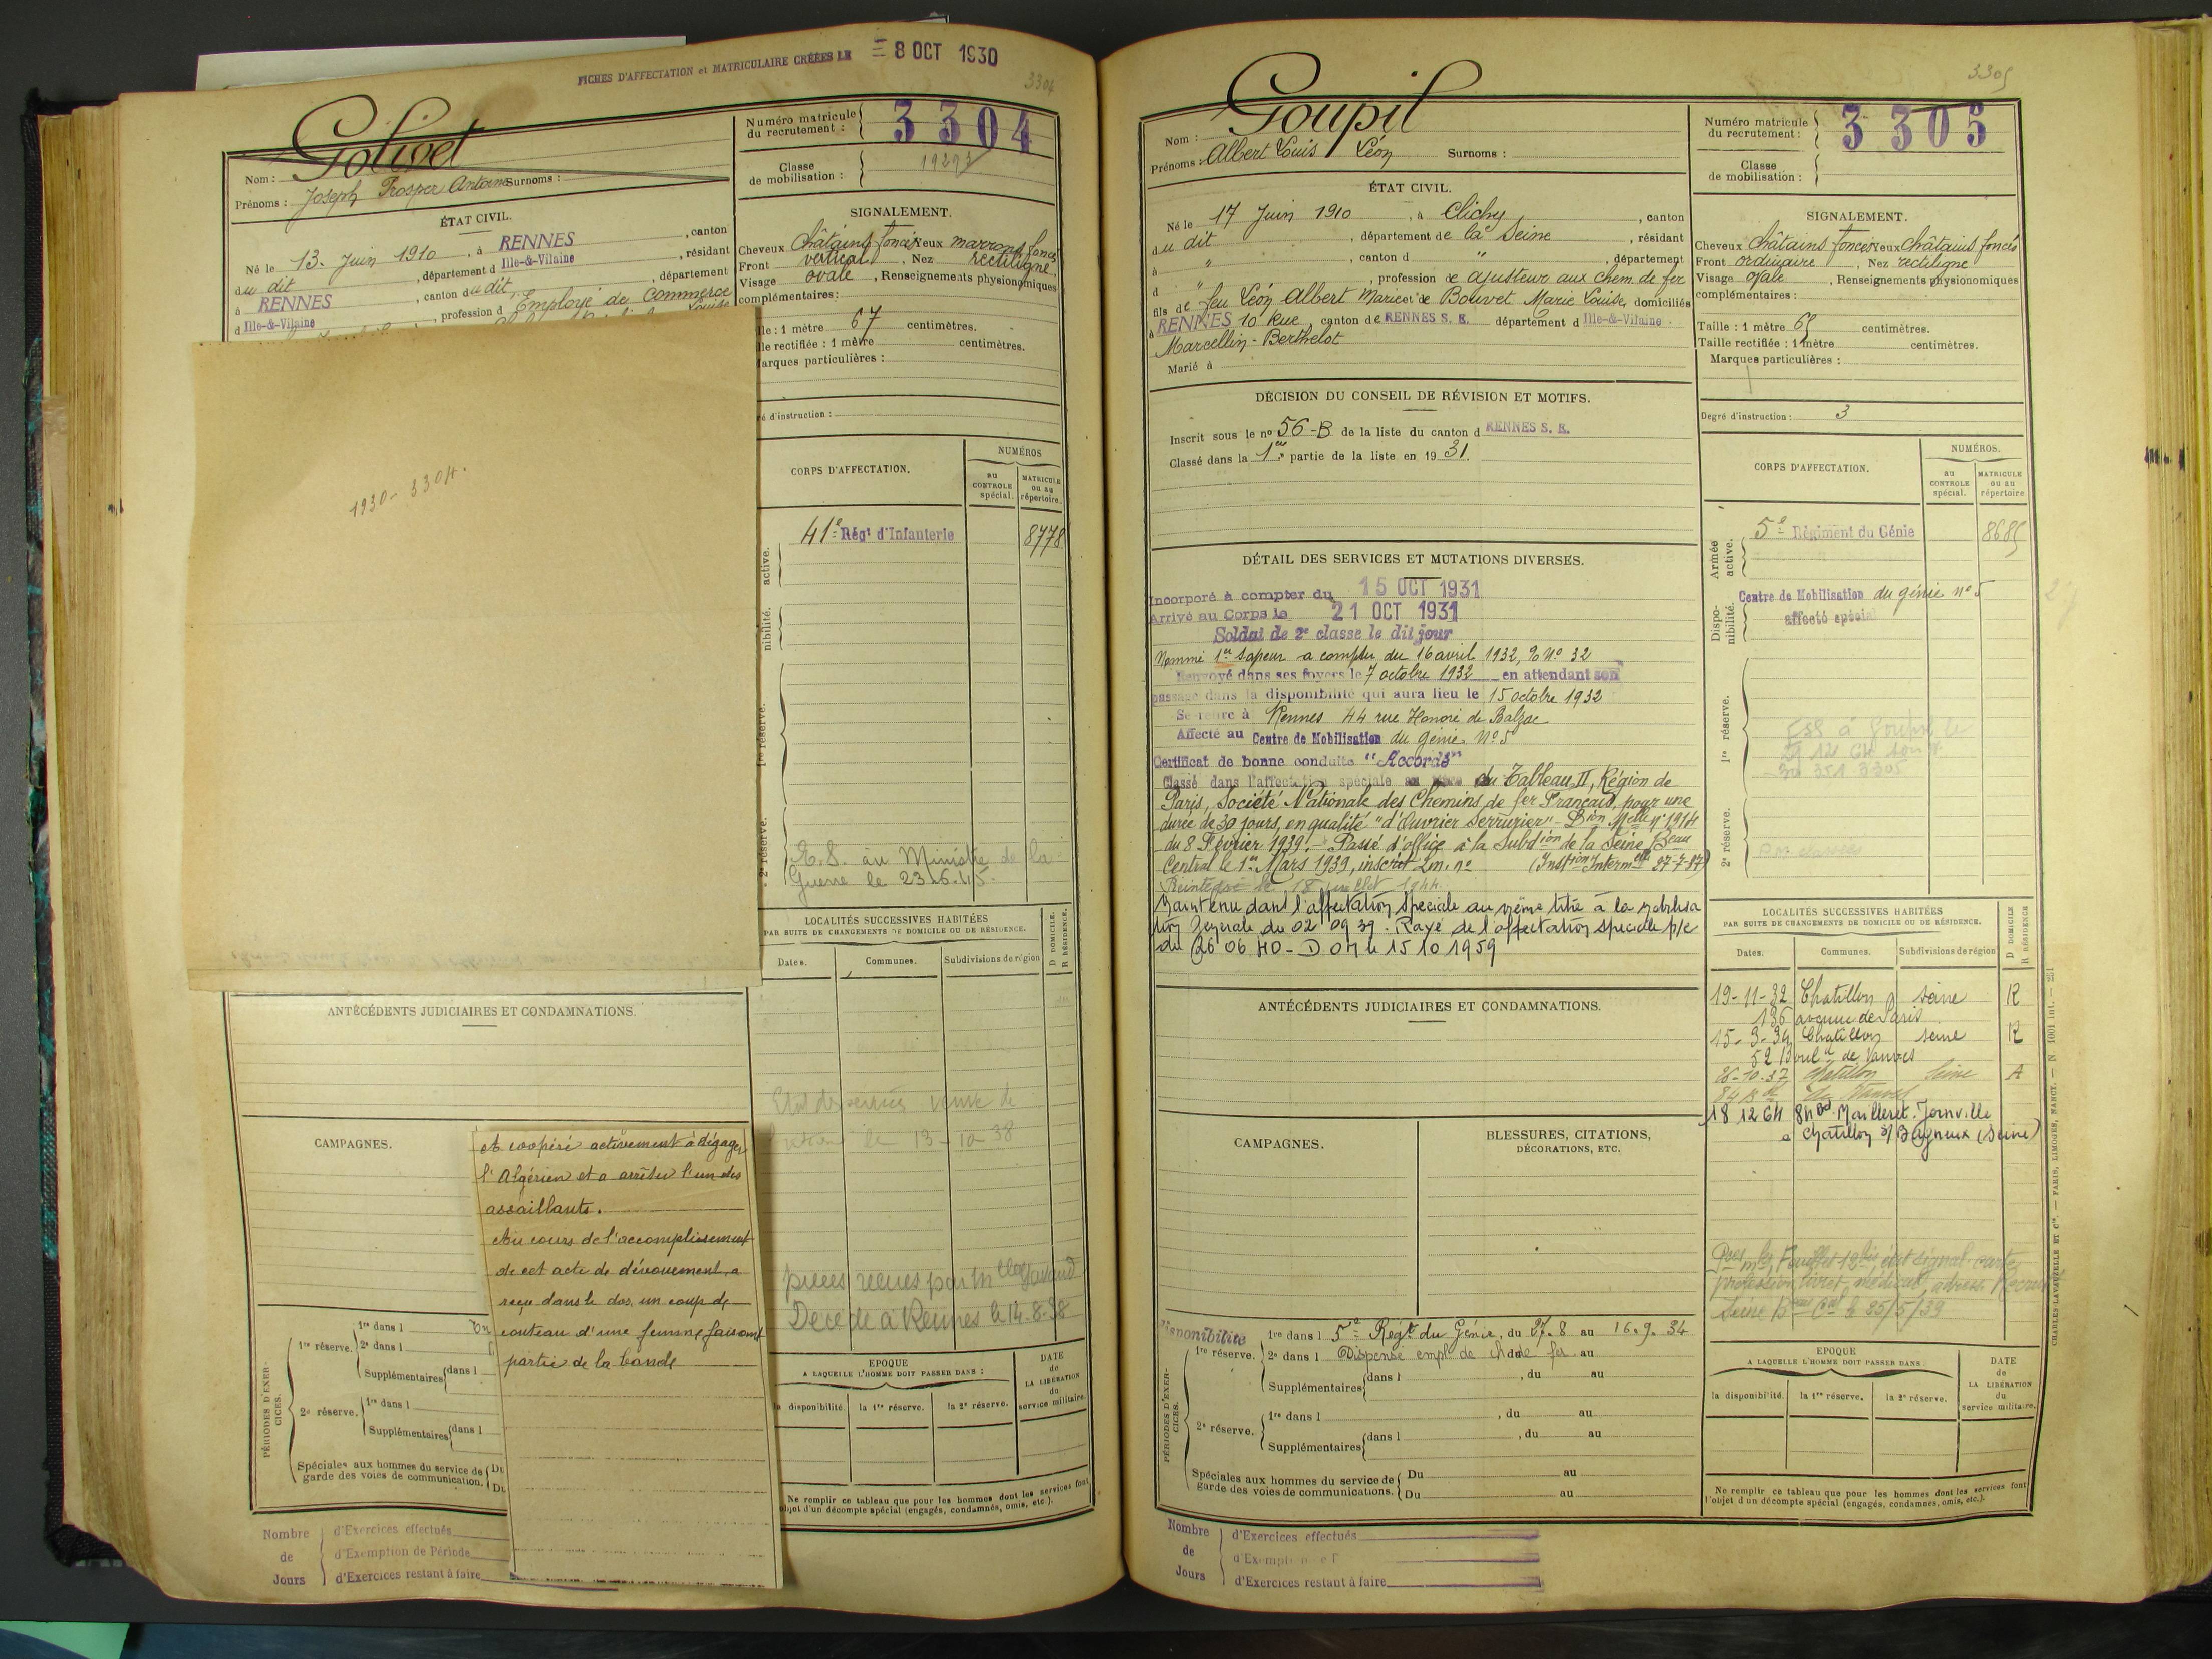 FICHES D'AFFECTATION et MATRICULAIRE CRÉÉES LE = 8 OCT 1930
3304
Golivet
Nom :
Prénoms : Joseph Prosper Antoine Surnoms :
Numéro matricule du recrutement : 3304
Classe de mobilisation :
ÉTAT CIVIL.
Né le 13 Juin 1910, à RENNES, canton
du dit, département d Ille-&-Vilaine, résidant
à RENNES, canton du dit, département
d Ille-&-Vilaine, profession d Employé de Commerce
SIGNALEMENT.
Cheveux Châtains foncés Yeux marrons foncés
Front vertical, Nez rectiligne
Visage ovale, Renseignements physionomiques
complémentaires :
lle : 1 mètre 67 centimètres.
lle rectifiée : 1 mètre centimètres.
arques particulières :
ré d'instruction :
1930 - 3304.
CORPS D'AFFECTATION.
NUMÉROS
au CONTROLE spécial.
MATRICULE ou au répertoire.
active.
41e Régt d'Infanterie 8778
nibilité.
1re réserve.
2e réserve.
E.S. au Ministre de la
Guerre le 23.6.45.
LOCALITÉS SUCCESSIVES HABITÉES
PAR SUITE DE CHANGEMENTS DE DOMICILE OU DE RÉSIDENCE.
D DOMICILE.
R RÉSIDENCE.
Dates. Communes. Subdivisions de région
le 13-10-38
pièces reçues par
Décédé à Rennes le 14.8.38
ANTÉCÉDENTS JUDICIAIRES ET CONDAMNATIONS.
CAMPAGNES.
et coopéré activement à dégager
l'Algérien et a arrêté l'un des
assaillants.
Au cours de l'accomplissement
de cet acte de dévouement a
reçu dans le dos, un coup de
couteau d'une femme faisant
partie de la bande
PÉRIODES D'EXERCICES.
1re réserve.
1re dans l
2e dans l
Supplémentaires dans l
2e réserve.
1re dans l
Supplémentaires dans l
Spéciales aux hommes du service de
garde des voies de communication.
Du
Du
EPOQUE
A LAQUELLE L'HOMME DOIT PASSER DANS :
la disponibilité. la 1re réserve. la 2e réserve.
DATE de LA LIBÉRATION du service militaire.
Ne remplir ce tableau que pour les hommes dont les services font
objet d'un décompte spécial (engagés, condamnés, omis, etc.).
Nombre de Jours
d'Exercices effectués
d'Exemption de Période
d'Exercices restant à faire
3305
Goupil
Nom :
Prénoms : Albert Louis Léon Surnoms :
Numéro matricule du recrutement : 3305
Classe de mobilisation :
ÉTAT CIVIL.
Né le 17 Juin 1910, à Clichy, canton
du dit, département de la Seine, résidant
à ", canton d ", département
d ", profession de ajusteur aux chem. de fer
fils de feu Léon Albert Marie et de Bouvet Marie Louise, domiciliés
à RENNES 10 Rue, canton de RENNES S. E. département d Ille-&-Vilaine
Marcellin-Berthelot
Marié à
SIGNALEMENT.
Cheveux Châtains foncés Yeux Châtains foncés
Front ordinaire, Nez rectiligne
Visage ovale, Renseignements physionomiques
complémentaires :
Taille : 1 mètre 65 centimètres.
Taille rectifiée : 1 mètre centimètres.
Marques particulières :
Degré d'instruction : 3
DÉCISION DU CONSEIL DE RÉVISION ET MOTIFS.
Inscrit sous le no 56-B de la liste du canton d RENNES S. E.
Classé dans la 1re partie de la liste en 1931.
DÉTAIL DES SERVICES ET MUTATIONS DIVERSES.
Incorporé à compter du 15 OCT 1931
Arrivé au Corps le 21 OCT 1931
Soldat de 2e classe le dit jour
Nommé 1er Sapeur a compter du 16 avril 1932, No 32
Renvoyé dans ses foyers le 7 octobre 1932 en attendant son
passage dans la disponibilité qui aura lieu le 15 octobre 1932
Se retire à Rennes 44 rue Honoré de Balzac
Affecté au Centre de Mobilisation du Génie No 5
Certificat de bonne conduite "Accordé"
Classé dans l'affectation spéciale au du Tableau II, Région de
Paris, Société Nationale des Chemins de fer Français, pour une
durée de 30 jours, en qualité "d'Ouvrier Serrurier" - Don Melle no 1914
du 8 Février 1939. - Passé d'office à la Subdion de la Seine, Beau
Central le 1er Mars 1939, inscrit Lm. no (Instion Intermelle 27-7-37)
Réintégré le 18 juillet 1944.
Maintenu dans l'affectation spéciale au même titre à la mobilisa
tion générale du 02 09 39. Rayé de l'affectation spéciale p/c
du 26 06 40 - D O M le 15 10 1959
CORPS D'AFFECTATION.
NUMÉROS.
au CONTROLE spécial.
MATRICULE ou au répertoire
Armée active.
5e Régiment du Génie 8685
Disponibilité.
Centre de Mobilisation du génie no 5
affecté spécial
1re réserve.
2e réserve.
LOCALITÉS SUCCESSIVES HABITÉES
PAR SUITE DE CHANGEMENTS DE DOMICILE OU DE RÉSIDENCE.
D DOMICILE
R RÉSIDENCE
Dates. Communes. Subdivisions de région
19-11-32 Chatillon Seine R
136 avenue de Paris
15-3-34 Chatillon Seine R
52 Bould de Vanves
26-10-37 Chatillon Seine A
84 Bd de Vanves
18 12 64 84 Bd Mailleret-Joinville
a Chatillon s/ Bagneux (Seine)
ANTÉCÉDENTS JUDICIAIRES ET CONDAMNATIONS.
CAMPAGNES.
BLESSURES, CITATIONS,
DÉCORATIONS, ETC.
Disponibilité
PÉRIODES D'EXERCICES.
1re réserve.
1re dans l 5e Régt du Génie, du 27.8 au 16.9.34
2e dans l Dispensé empl. de ch. de fer au
Supplémentaires dans l, du au
2e réserve.
1re dans l, du au
Supplémentaires dans l, du au
Spéciales aux hommes du service de
garde des voies de communications.
Du au
Du au
EPOQUE
A LAQUELLE L'HOMME DOIT PASSER DANS
la disponibilité. la 1re réserve. la 2e réserve.
DATE de LA LIBÉRATION du service militaire.
Ne remplir ce tableau que pour les hommes dont les services font
l'objet d'un décompte spécial (engagés, condamnés, omis, etc.).
CHARLES-LAVAUZELLE ET Cie. — PARIS, LIMOGES, NANCY. — N 1001 int. — 251
Nombre de Jours
d'Exercices effectués
d'Exempt
d'Exercices restant à faire